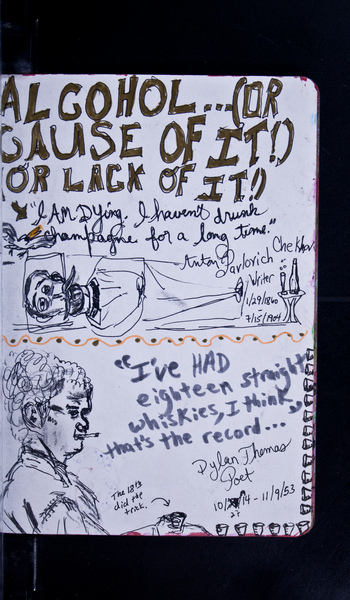 ALCOHOL...(OR
CAUSE OF IT!)
(OR LACK OF IT!)
"I AM Dying. I haven't drunk
champagne for a long time."
Anton Pavlovich Chekhov
Writer
1/29/1860
7/15/1904
"I've HAD
eighteen straight
whiskies, I think
that's the record..."
Dylan Thomas
Poet
10/ 14 - 11/9/53
27
The 18th
did the
trick.